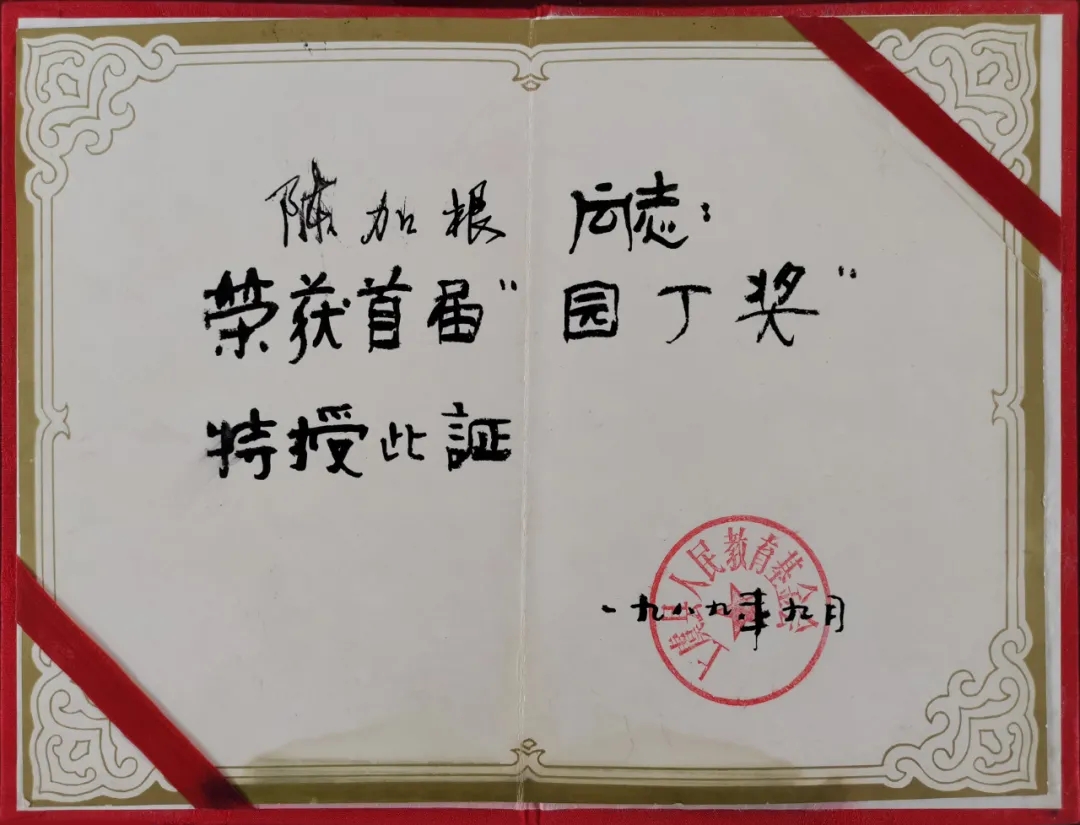 陈加根 同志：
荣获首届“园丁奖”
特授此証
上虞县人民教育基金会
一九八九年九月